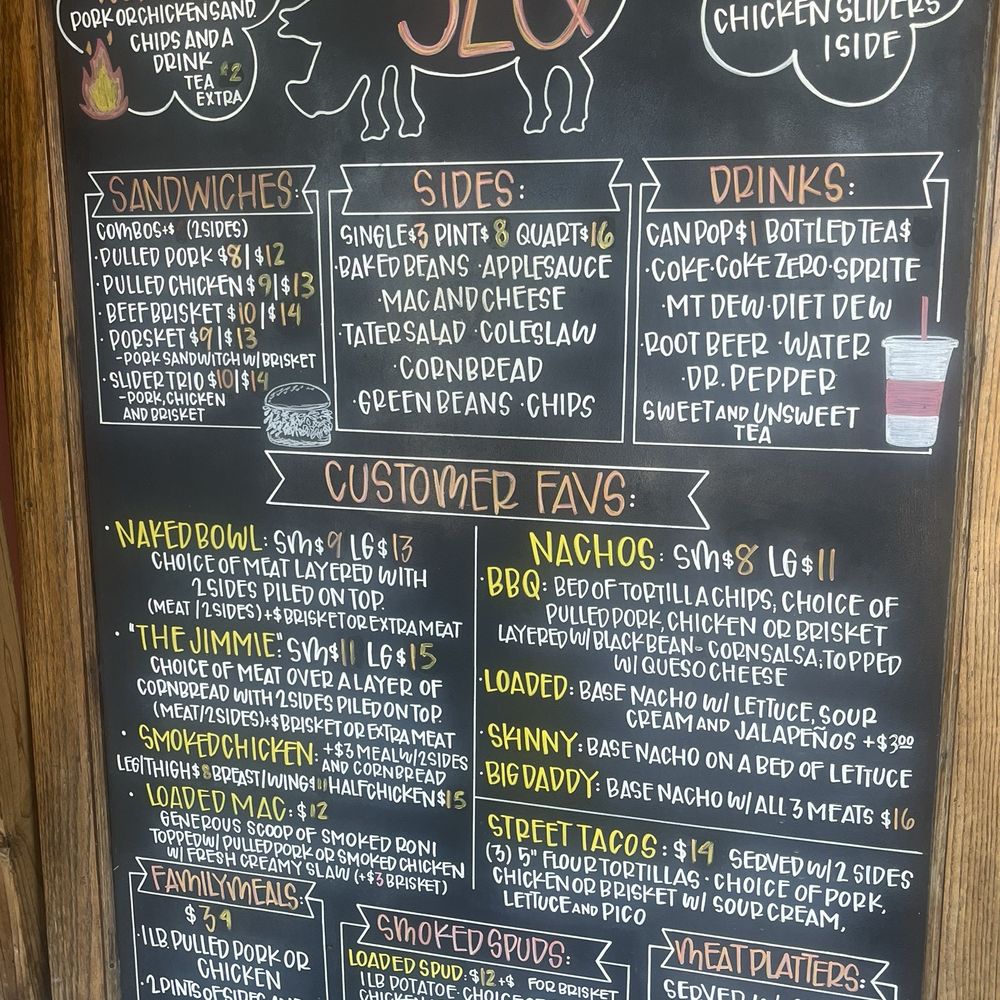 PORK OR CHICKEN SAND.
CHIPS AND A
DRINK
TEA $2
EXTRA
CHICKEN SLIDERS
1 SIDE
SANDWICHES:
COMBOS+$ (2 SIDES)
·PULLED PORK $8|$12
·PULLED CHICKEN $9|$13
·BEEF BRISKET $10|$14
·PORSKET $9|$13
-PORK SANDWITCH W/ BRISKET
·SLIDER TRIO $10|$14
-PORK, CHICKEN
AND BRISKET
SIDES:
SINGLE $3 PINT $8 QUART $16
·BAKED BEANS ·APPLESAUCE
·MAC AND CHEESE
·TATER SALAD ·COLESLAW
CORNBREAD
·GREEN BEANS ·CHIPS
DRINKS:
CAN POP $1 BOTTLED TEA $
·COKE·COKE ZERO·SPRITE
·MT DEW·DIET DEW
·ROOT BEER ·WATER
·DR. PEPPER
SWEET AND UNSWEET
TEA
CUSTOMER FAVS:
·NAKED BOWL: SM $9 LG $13
CHOICE OF MEAT LAYERED WITH
2 SIDES PILED ON TOP.
(MEAT/2 SIDES)+$ BRISKET OR EXTRA MEAT
·"THE JIMMIE": SM $11 LG $15
CHOICE OF MEAT OVER A LAYER OF
CORNBREAD WITH 2 SIDES PILED ON TOP.
(MEAT/2 SIDES)+$ BRISKET OR EXTRA MEAT
·SMOKED CHICKEN: +$3 MEAL W/ 2 SIDES
AND CORNBREAD
LEG/THIGH $8 BREAST/WING $11 HALF CHICKEN $15
·LOADED MAC: $12
GENEROUS SCOOP OF SMOKED RONI
TOPPED W/ PULLED PORK OR SMOKED CHICKEN
W/ FRESH CREAMY SLAW (+$3 BRISKET)
NACHOS: SM $8 LG $11
·BBQ: BED OF TORTILLA CHIPS, CHOICE OF
PULLED PORK, CHICKEN OR BRISKET
LAYERED W/ BLACK BEAN-CORN SALSA; TOPPED
W/ QUESO CHEESE
·LOADED: BASE NACHO W/ LETTUCE, SOUR
CREAM AND JALAPEÑOS +$3.00
·SKINNY: BASE NACHO ON A BED OF LETTUCE
·BIG DADDY: BASE NACHO W/ ALL 3 MEATS $16
STREET TACOS: $14 SERVED W/ 2 SIDES
(3) 5" FLOUR TORTILLAS · CHOICE OF PORK,
CHICKEN OR BRISKET W/ SOUR CREAM,
LETTUCE AND PICO
FAMILY MEALS:
$39
·1 LB PULLED PORK OR
CHICKEN
·2 PINTS OF SIDES AND
SMOKED SPUDS:
LOADED SPUD: $12 +$ FOR BRISKET
1 LB POTATOE · CHOICE OF
MEAT PLATTERS:
SERVED W/